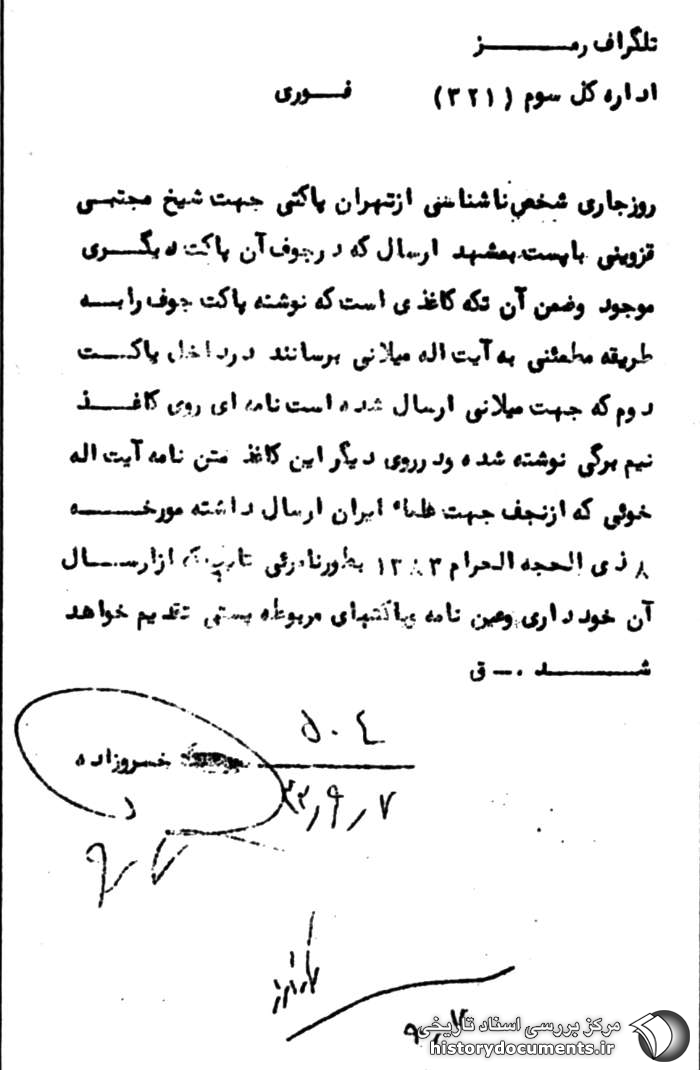 تلگراف رمـــــــز
اداره کل سوم (۳۲۱) فـــوری
روزجاری شخص ناشناسی ازتهران پاکتی جهت شیخ مجتبی
قزوینی باپست بمشهد ارسال که درجوف آن پاکت دیگـــری
موجود وضمن آن تکه کاغذی است که نوشته پاکت جوف رابـــه
طریقه مطمئنی به آیت اله میلانی برسانند درداخل پاکـــت
دوم که جهت میلانی ارسال شده است نامه ای روی کاغـــذ
نیم برگی نوشته شده ودرروی دیگر این کاغذ متن نامه آیت اله
خوئی که ازنجف جهت علماء ایران ارسال داشته مورخـــه
۸ ذی الحجه الحرام ۱۳۸۳ بطورنامرئی ازارســـال
آن خودداری وعین نامه وپاکتهای مربوطه پستی تقدیم خواهد
شـــــــد .ـ ق
۵۰۴
خسروزاده
۹٫۷
مرکز بررسی اسناد تاریخی
historydocuments.ir